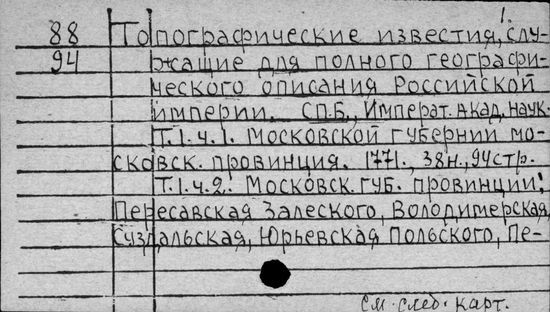 1.
88 Топографические известия, слу-
94 жащие для полного географи-
ческого описания Российской
империи. СПБ., Императ. Акад. наук.
Т.1.ч.1. Московской губернии мо-
сковск. провинция. 1771., 38н., 94стр.
Т.1.ч.2. Московск. губ. провинции:
Пересавская Залеского, Володимерская,
Суздальская, Юрьевская Польского, Пе-
см. след. карт.